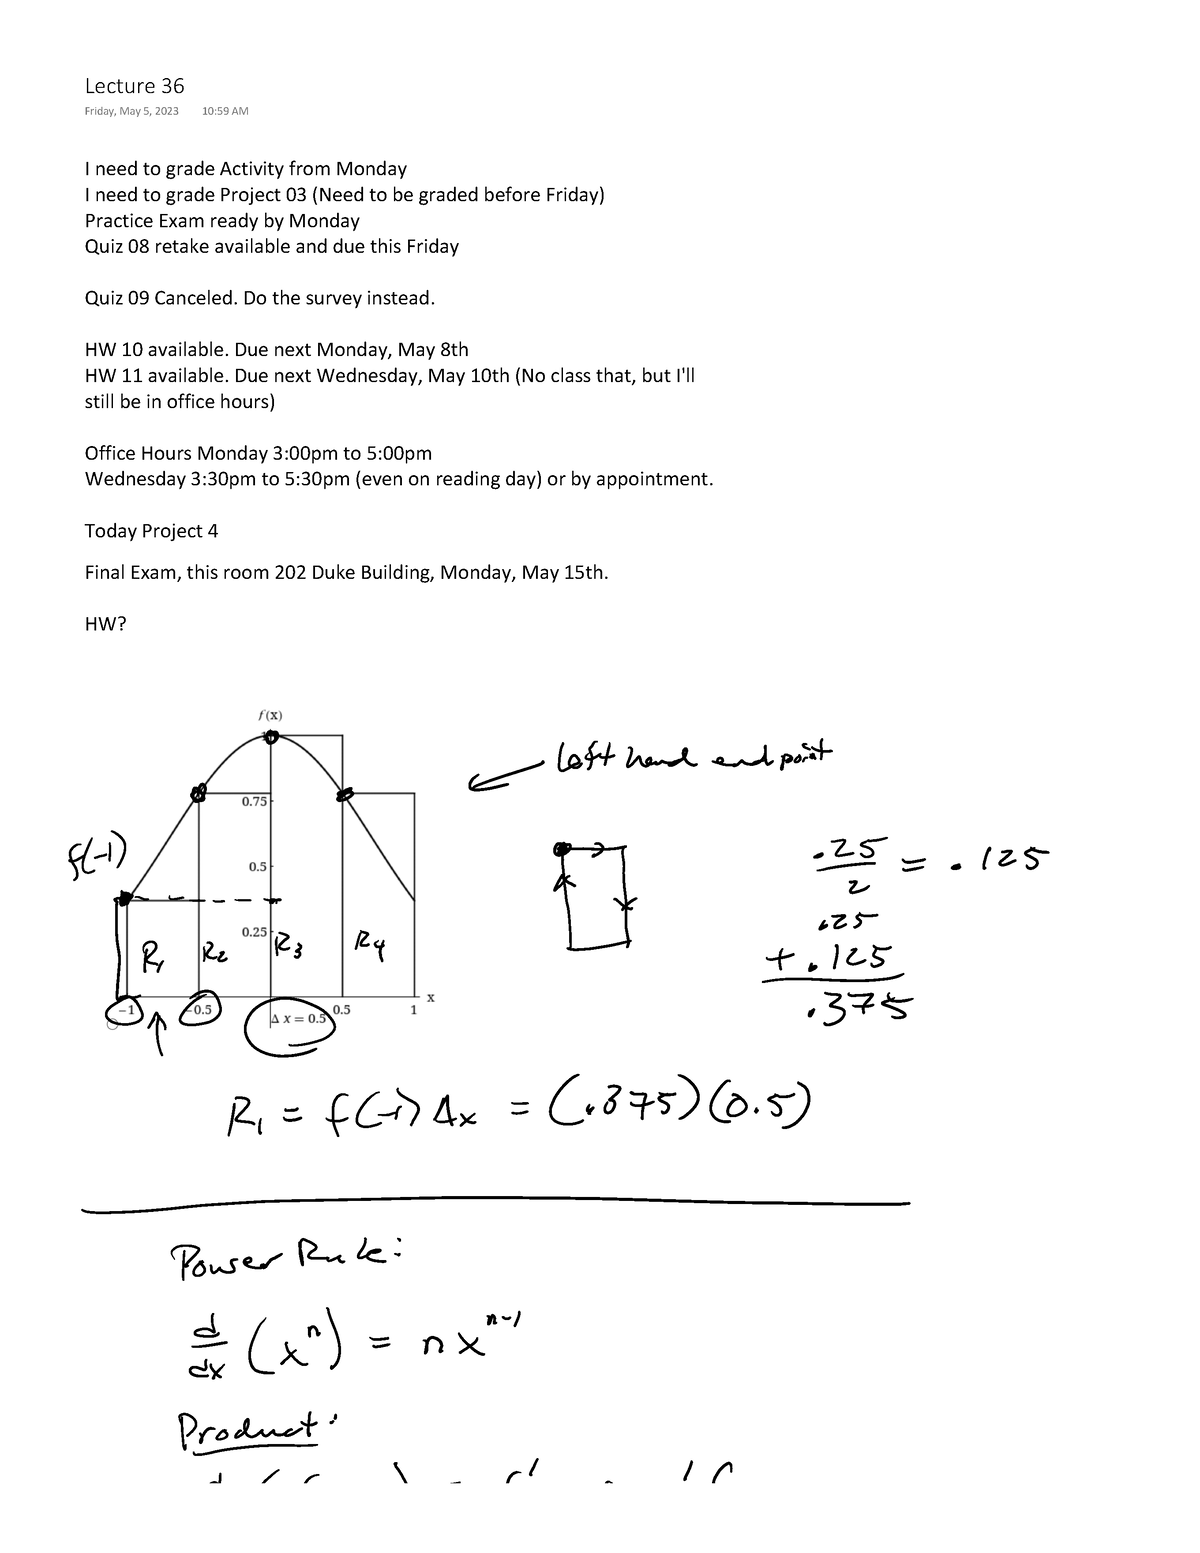 Lecture 36
Friday, May 5, 2023 10:59 AM
I need to grade Activity from Monday
I need to grade Project 03 (Need to be graded before Friday)
Practice Exam ready by Monday
Quiz 08 retake available and due this Friday
Quiz 09 Canceled. Do the survey instead.
HW 10 available. Due next Monday, May 8th
HW 11 available. Due next Wednesday, May 10th (No class that, but I'll
still be in office hours)
Office Hours Monday 3:00pm to 5:00pm
Wednesday 3:30pm to 5:30pm (even on reading day) or by appointment.
Today Project 4
Final Exam, this room 202 Duke Building, Monday, May 15th.
HW?
f(x)
left hand end point
0.75
f(-1)
0.5
.25/2 = .125
.25
0.25
R₁ R₂ R₃ R₄
+ .125
.375
x
-1 -0.5 0.5 1
Δ x = 0.5
R₁ = f(-1) Δx = (.375)(0.5)
Power Rule:
d/dx (xⁿ) = n xⁿ⁻¹
Product: